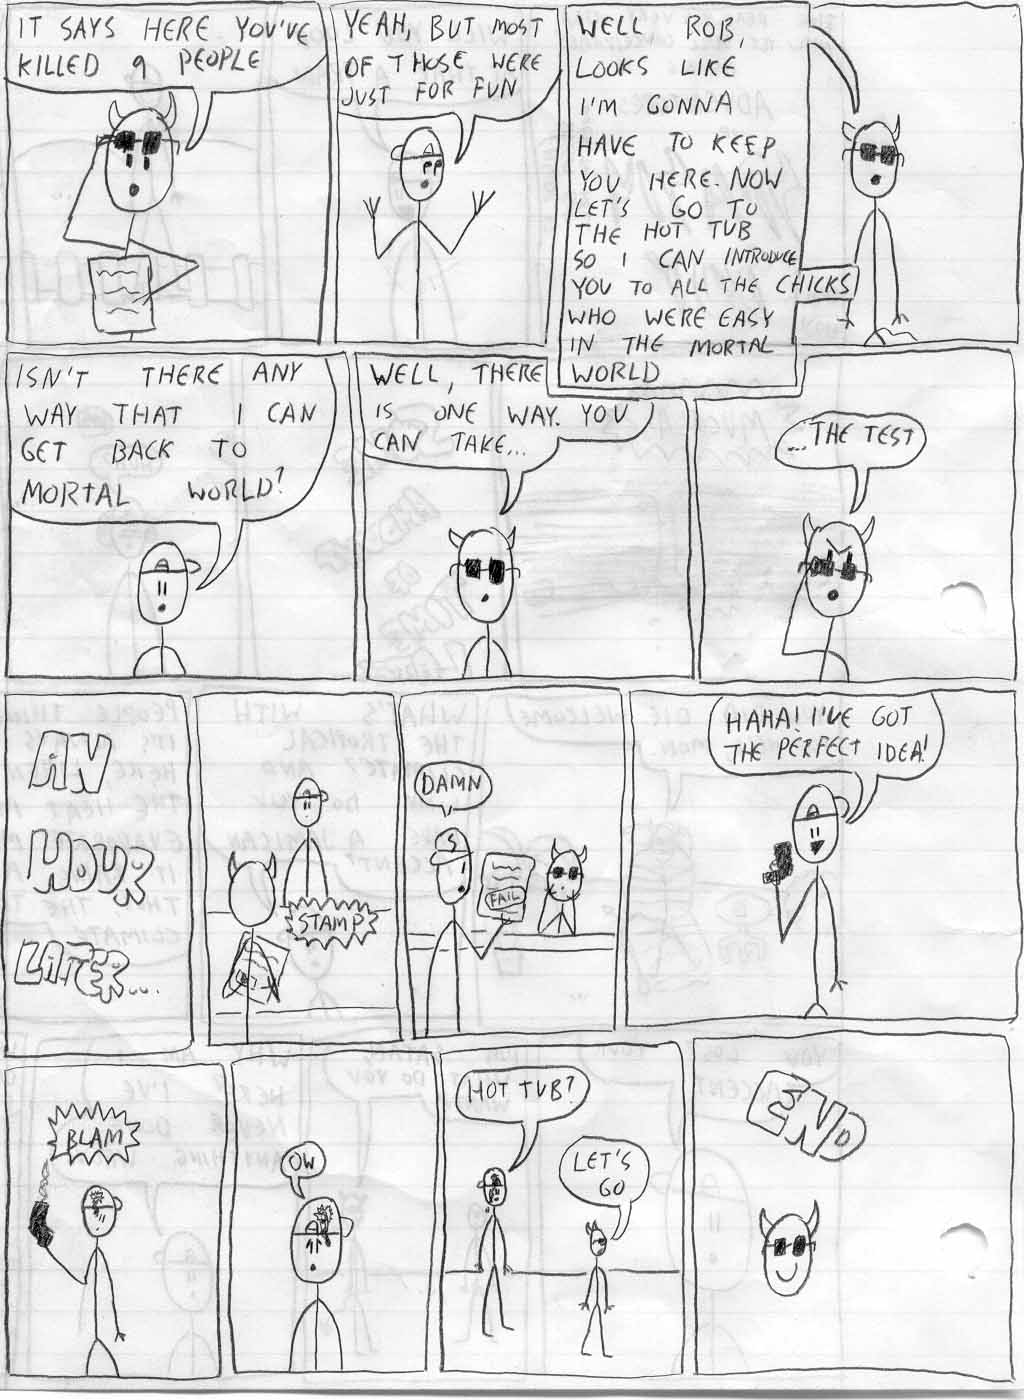 IT SAYS HERE YOU'VE
KILLED 9 PEOPLE
YEAH, BUT MOST
OF THOSE WERE
JUST FOR FUN
WELL ROB,
LOOKS LIKE
I'M GONNA
HAVE TO KEEP
YOU HERE. NOW
LET'S GO TO
THE HOT TUB
SO I CAN INTRODUCE
YOU TO ALL THE CHICKS
WHO WERE EASY
IN THE MORTAL
WORLD
ISN'T THERE ANY
WAY THAT I CAN
GET BACK TO
MORTAL WORLD?
WELL, THERE
IS ONE WAY. YOU
CAN TAKE...
...THE TEST
AN
HOUR
LATER...
STAMP
DAMN
S
FAIL
HAHA! I'VE GOT
THE PERFECT IDEA!
BLAM
OW
HOT TUB?
LET'S
GO
END